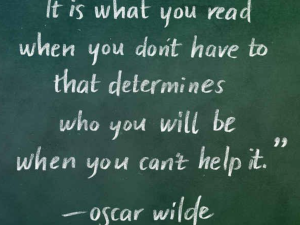 It is what you read
when you don't have to
that determines
who you will be
when you can't help it.”
—oscar wilde